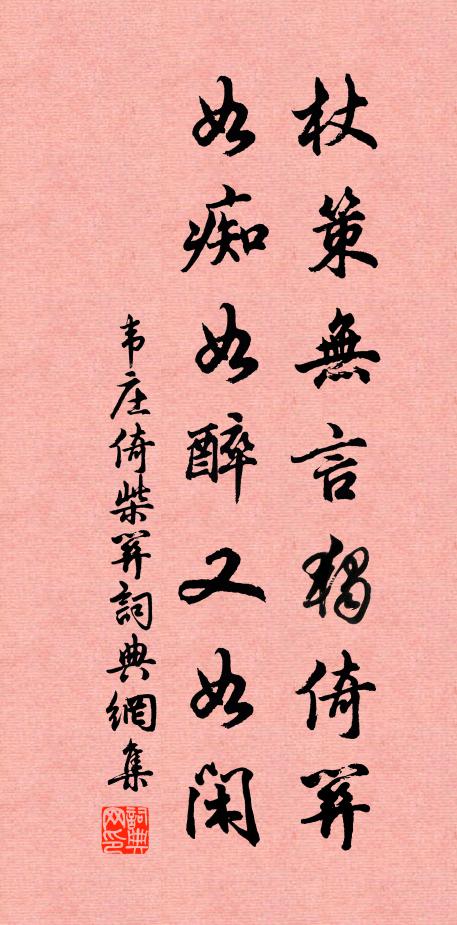 杖策無言獨倚關
如痴如醉又如閑
韦庄倚柴關詞典網集
詞典网印